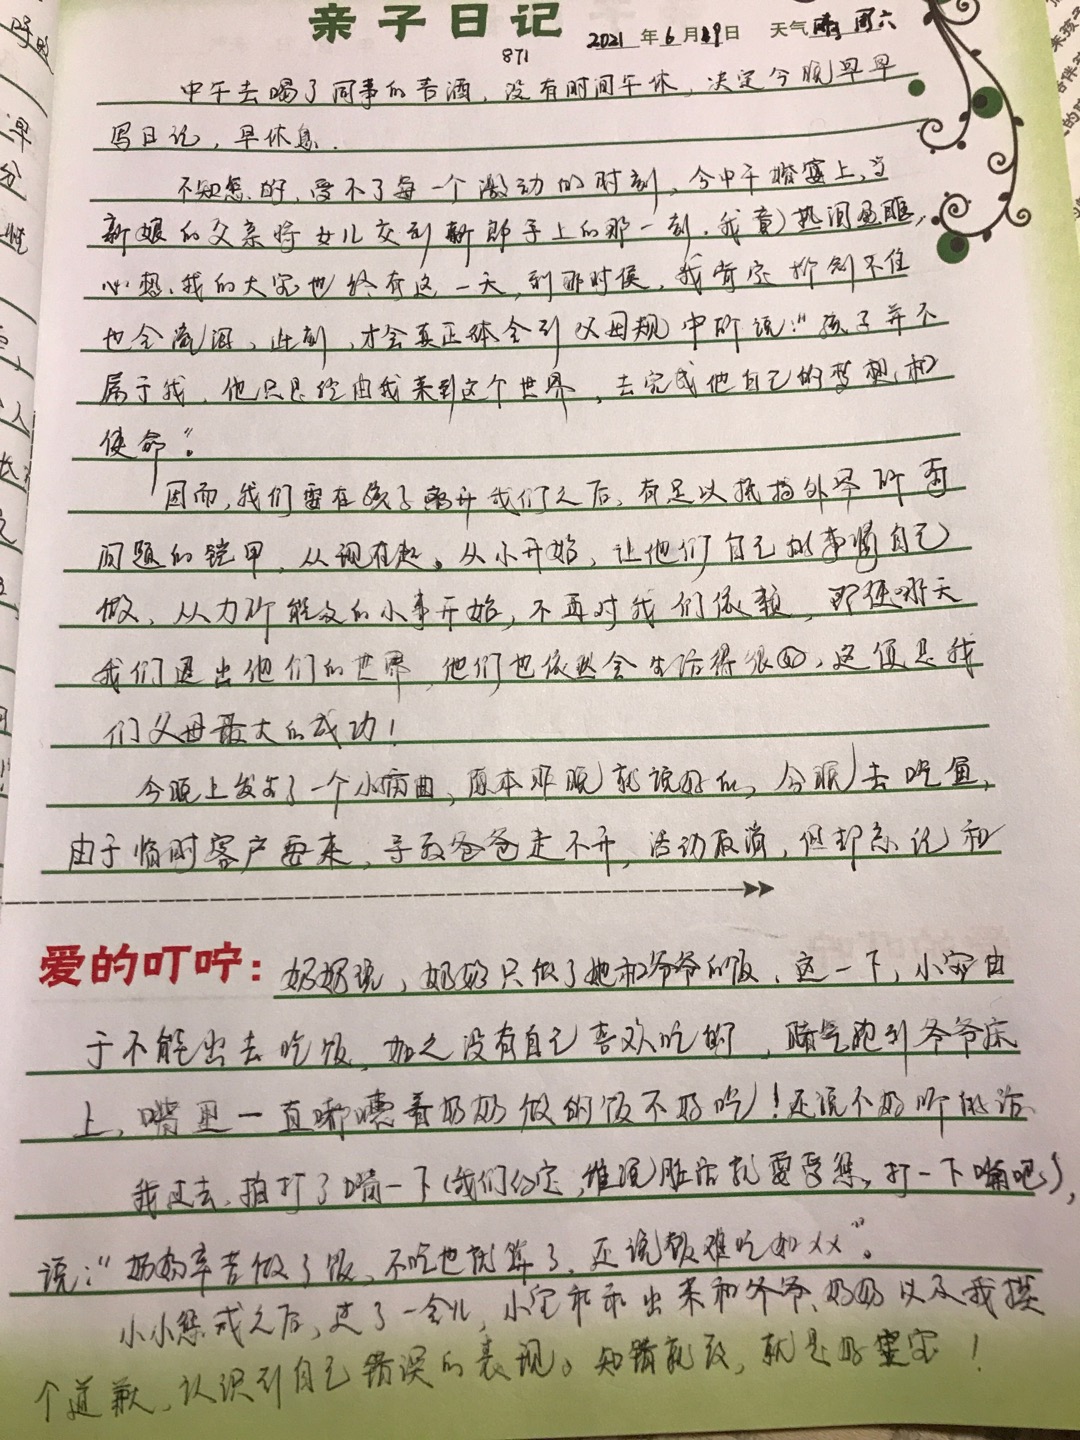 亲子日记
2021年6月19日 天气晴 周六
871
中午去喝了同事的喜酒，没有时间午休，决定今晚早早
写日记，早休息.
不知怎的，受不了每一个激动的时刻，今中午婚宴上，当
新娘的父亲将女儿交到新郎手上的那一刻，我竟热泪盈眶，
心想，我的大宝也终有这一天，到那时候，我肯定抑制不住
也会流泪，此刻，才会真正体会到父母规中所说："孩子并不
属于我，他只是经由我来到这个世界，去完成他自己的梦想和
使命"。
因而，我们要在孩子离开我们之后，有足以抵挡外界所有
问题的铠甲，从现在起，从小开始，让他们自己的事情自己
做，从力所能及的小事开始，不再对我们依赖，即使哪天
我们退出他们的世界，他们也依然会生活得很好，这便是我
们父母最大的成功！
今晚上发生了一个小病曲，原本昨晚就说好的，今晚去吃鱼，
由于临时客户要来，导致爸爸走不开，活动取消，但却忘记和
爱的叮咛：奶奶说，奶奶只做了她和爷爷的饭，这一下，小宝由
于不能出去吃饭，加之没有自己喜欢吃的，赌气跑到爷爷床
上，嘴里一直嘟囔着奶奶做的饭不好吃！还说不好听的话
我过去，拍打了嘴一下（我们约定，谁说脏话就要受惩，打一下嘴吧），
说："奶奶辛苦做了饭，不吃也就算了，还说饭难吃如xx"。
小小惩戒之后，过了一会儿，小宝乖乖出来和爷爷、奶奶以及我挨
个道歉，认识到自己错误的表现。知错就改，就是好宝宝！